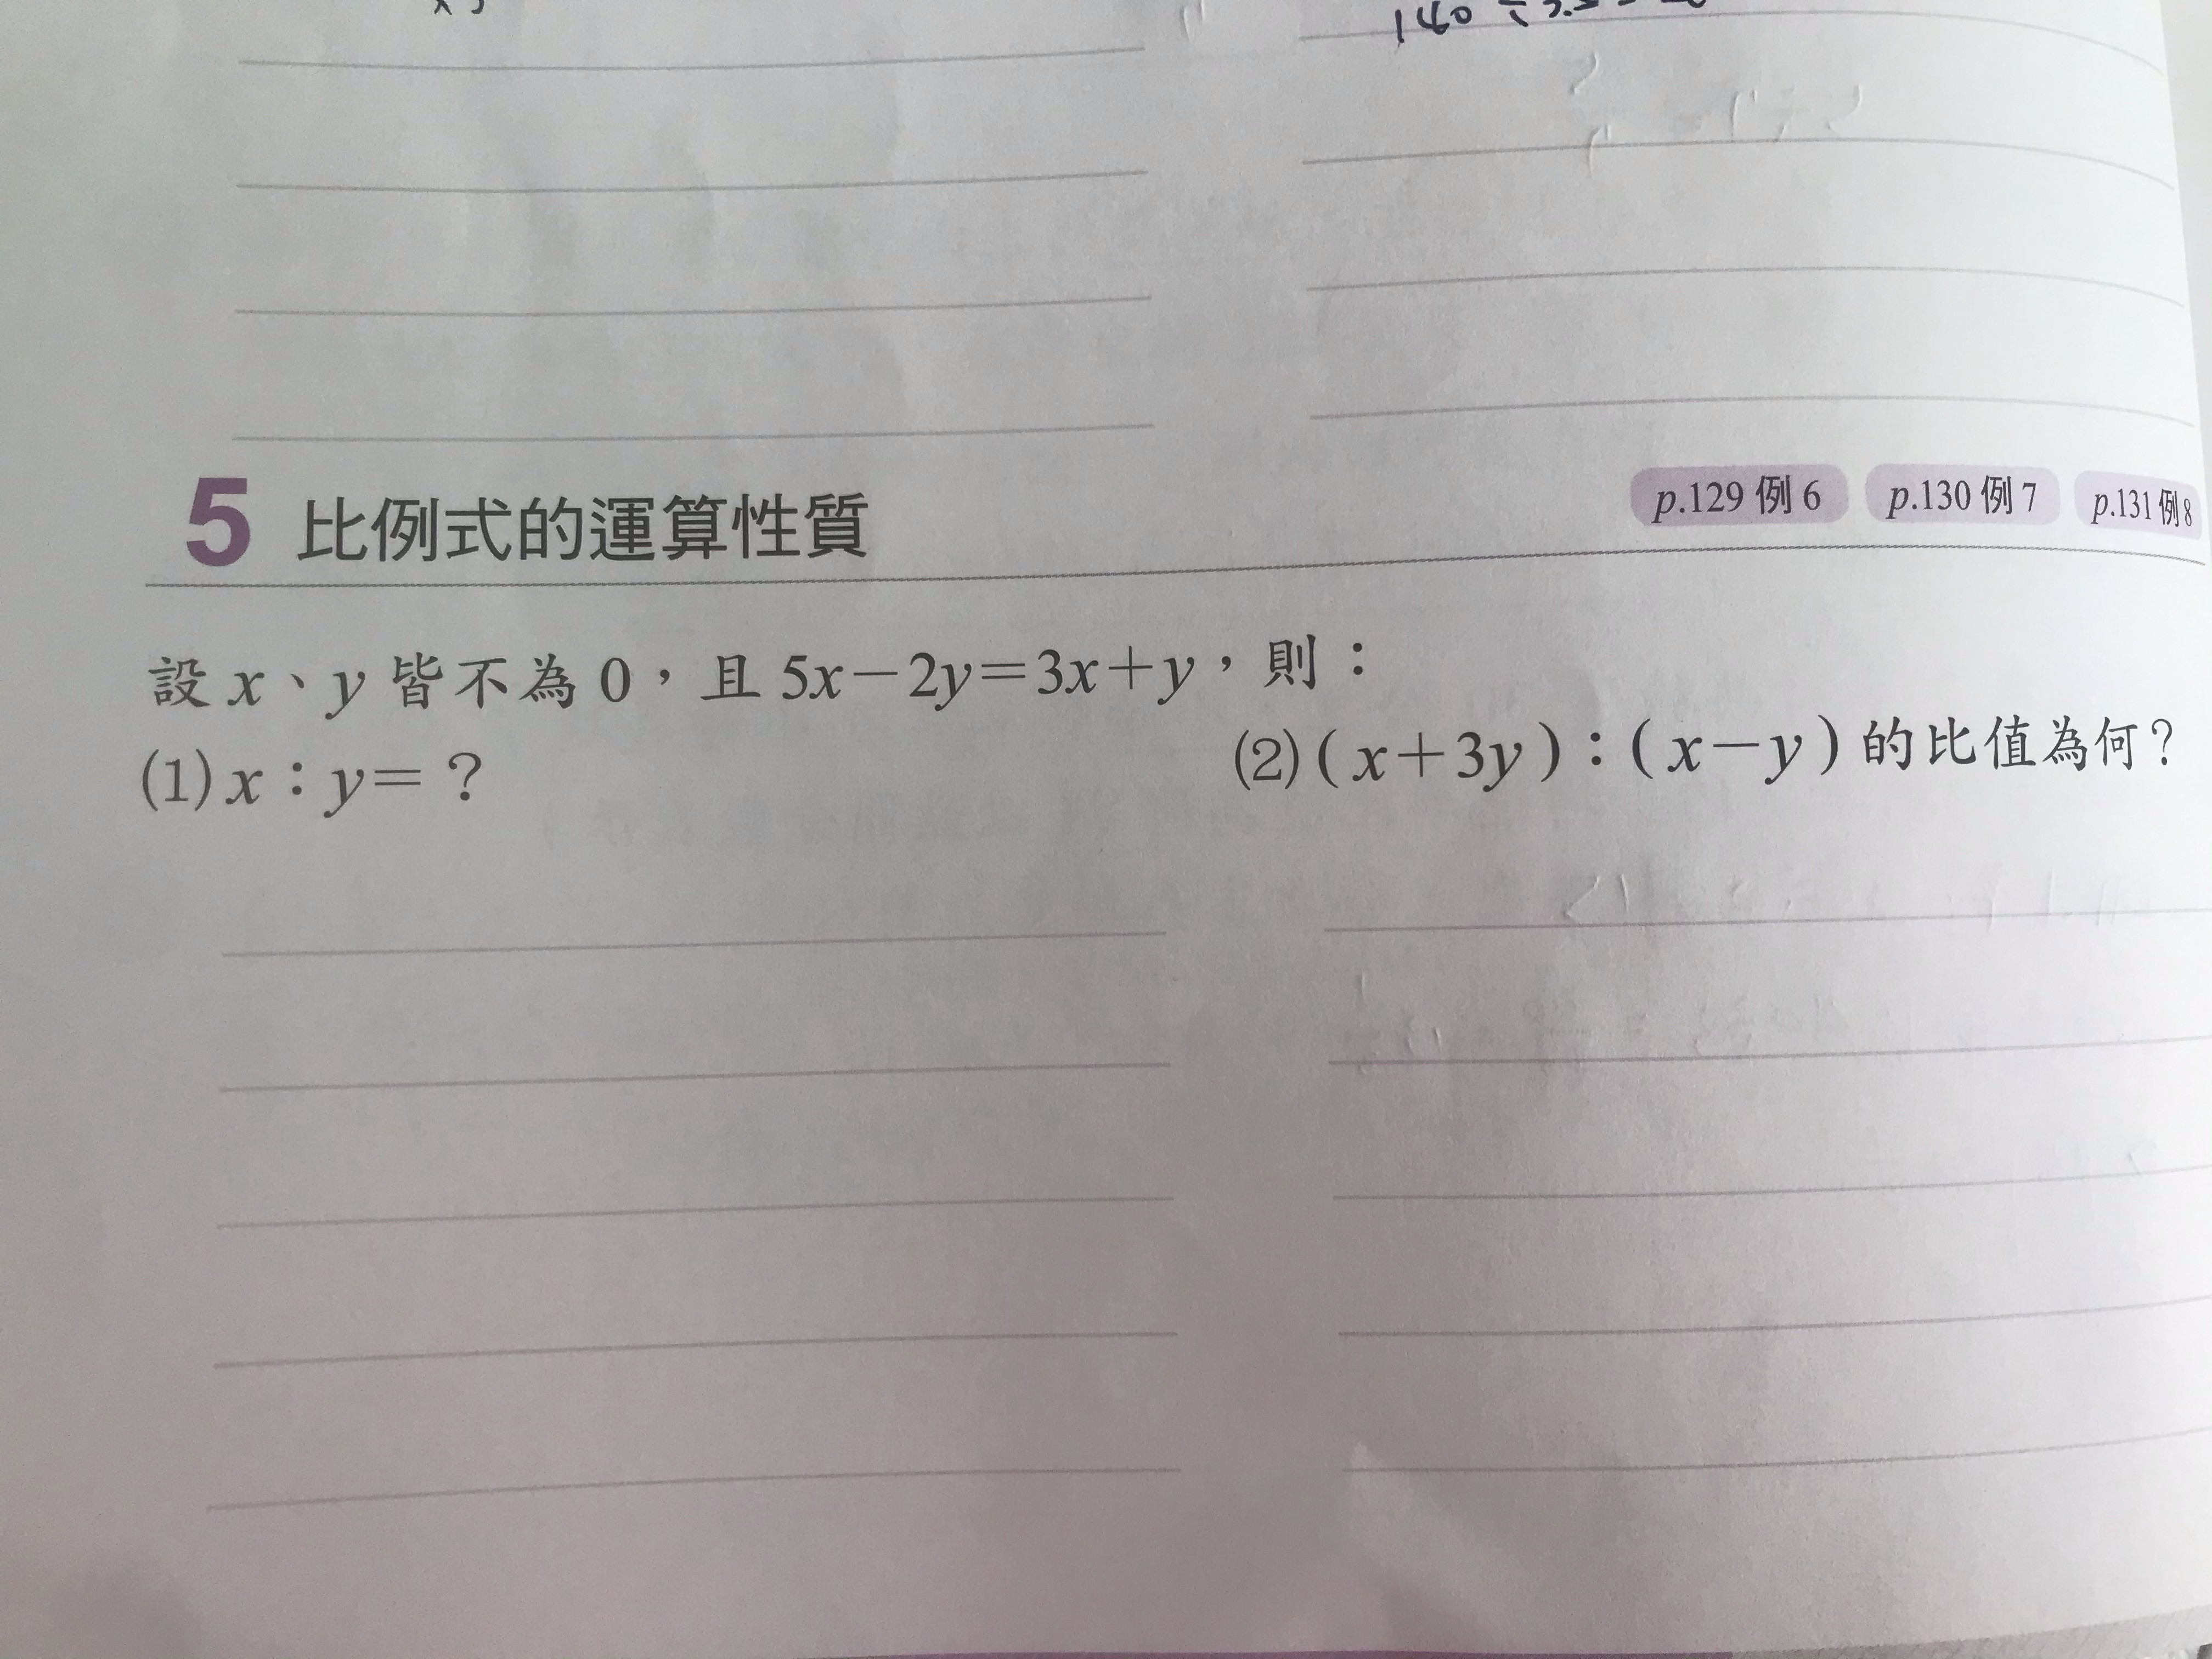 140
5 比例式的運算性質 p.129 例 6 p.130 例 7 p.131 例 8
設 x、y 皆不為 0，且 5x－2y＝3x＋y，則：
(1) x：y＝？ (2)（x＋3y）：（x－y）的比值為何？